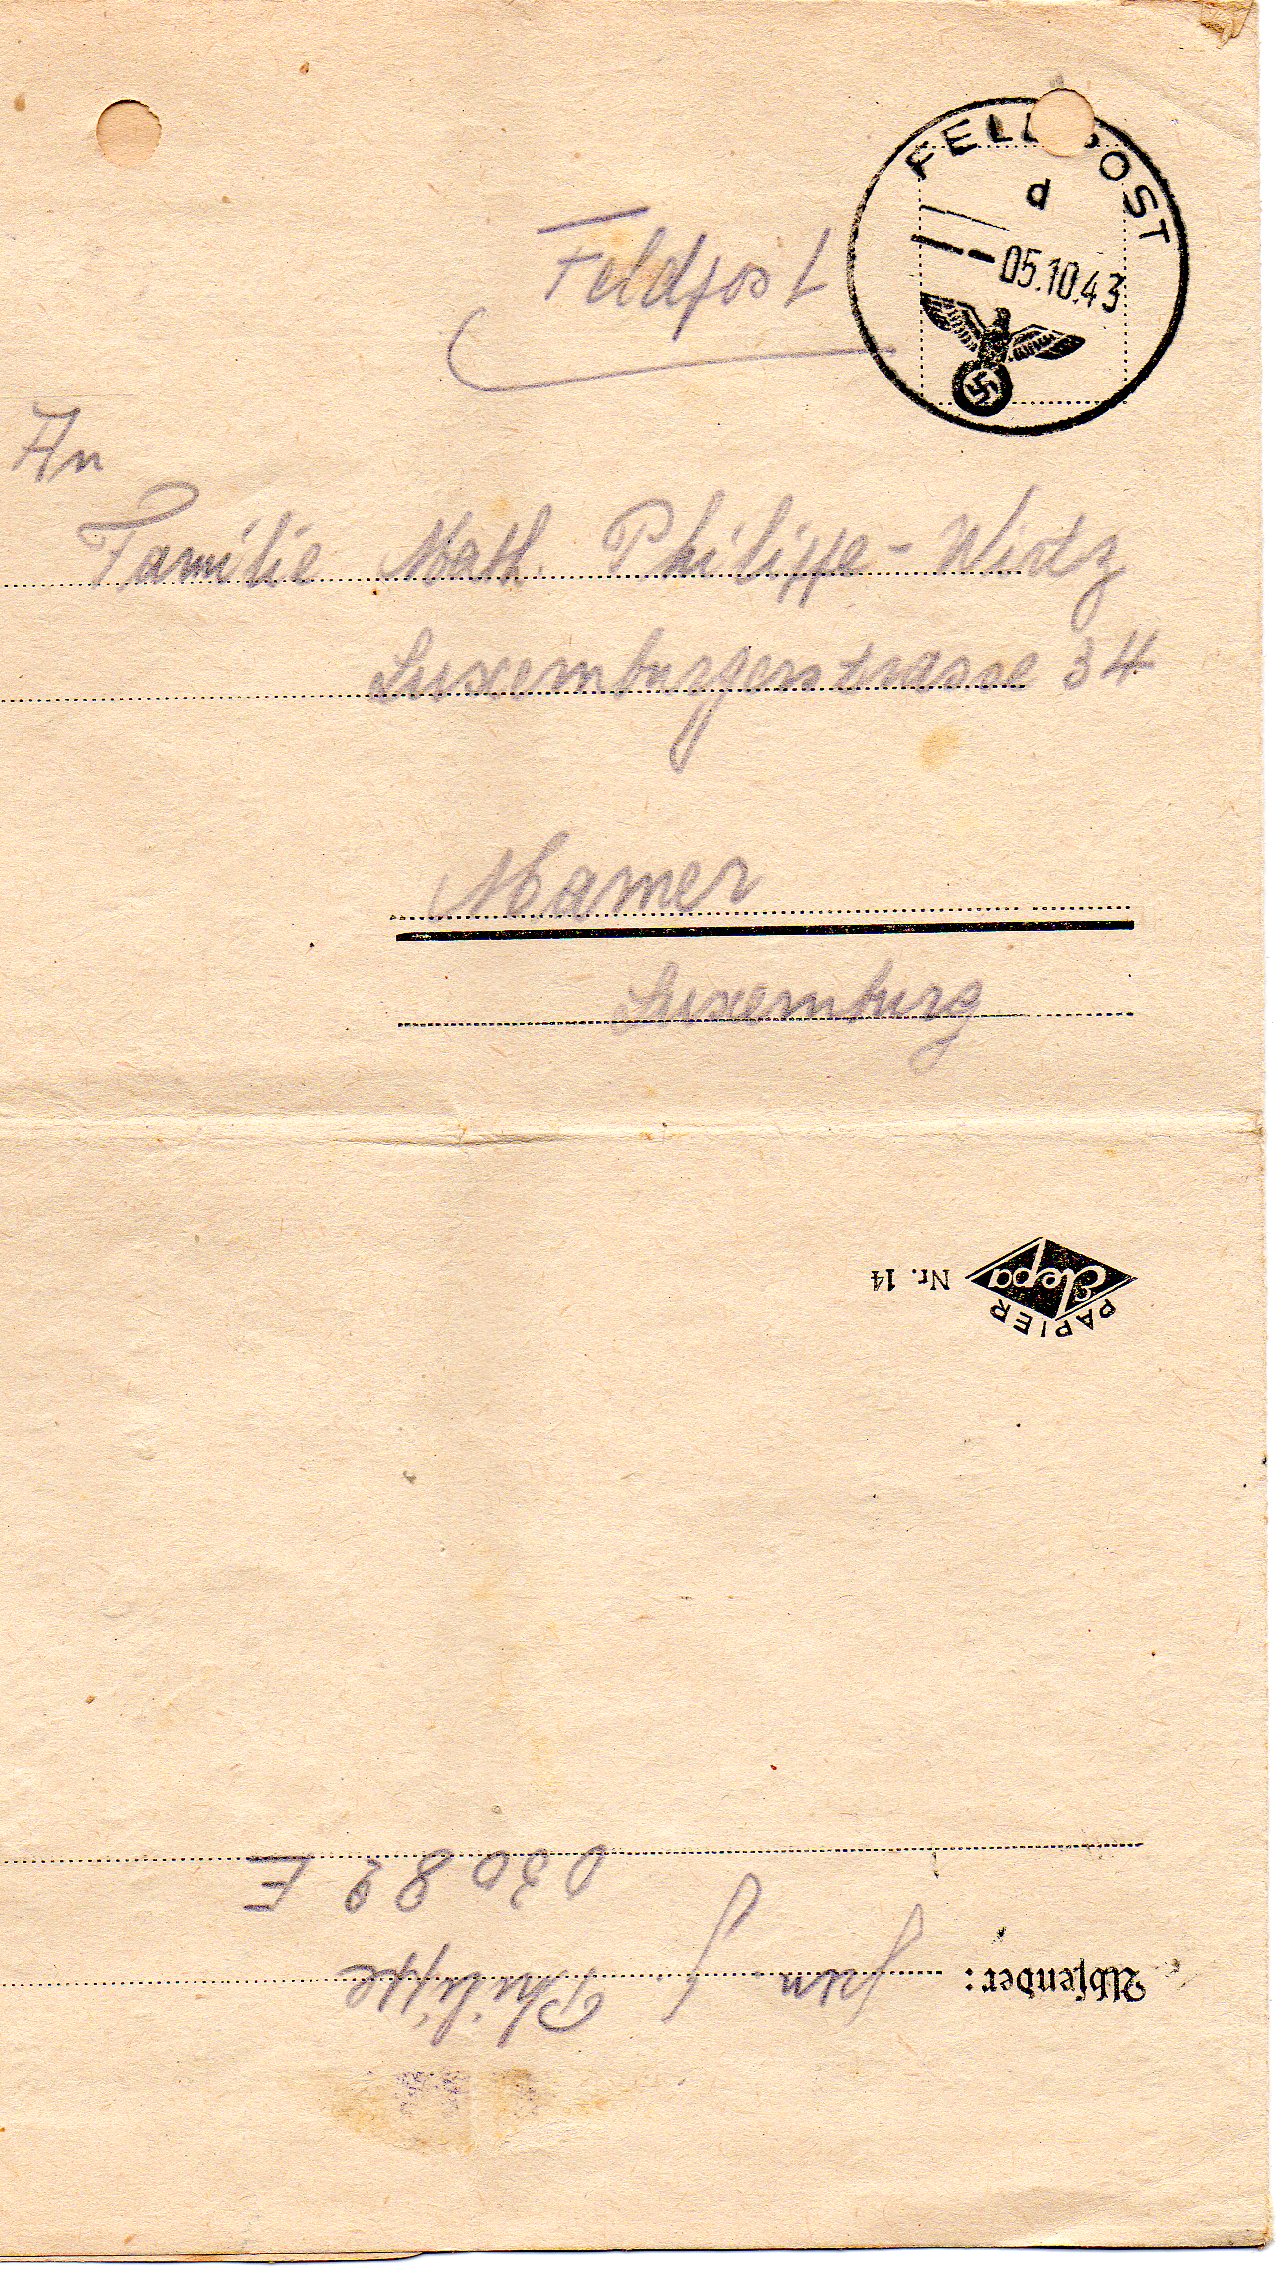 FELDPOST
d
05.10.43
Feldpost
An
Familie Math. Philippe-Wirtz
Luxemburgerstrasse 34
Mamer
Luxemburg
PAPIER
Elepa
Nr. 14
Absender:
Philippe
03082 E